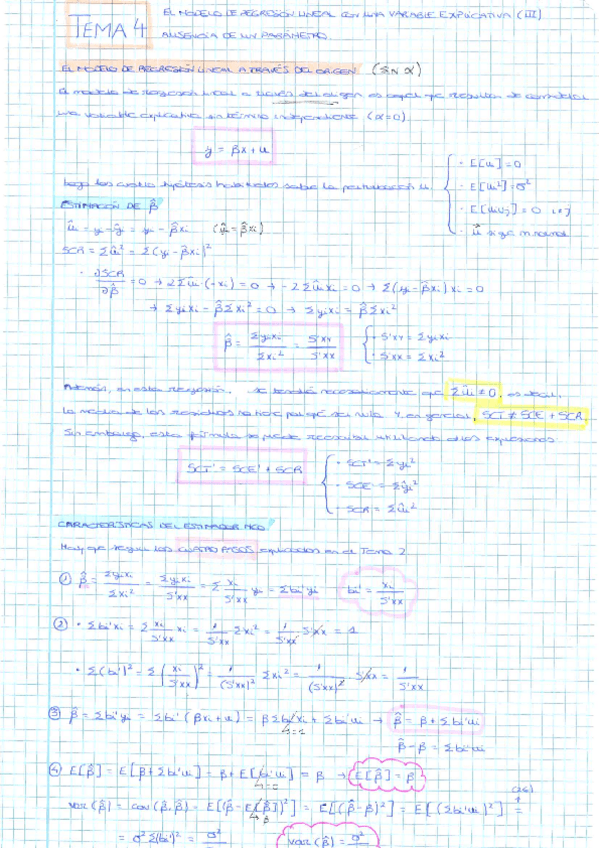 EL MODELO DE REGRESIÓN LINEAL CON UNA VARIABLE EXPLICATIVA (III)
TEMA 4
AUSENCIA DE UN PARÁMETRO.
EL MODELO DE REGRESIÓN LINEAL A TRAVÉS DEL ORIGEN (SIN α)
El modelo de regresión lineal a través del origen es aquel que una variable explicativa sin término independiente (α=0).
y = βx + u
· E[ui] = 0
· E[ui²] = σ²
· E[uiuj] = 0 i≠j
hipótesis habituales sobre la perturbación u.
ESTIMACIÓN DE β̂
û = y - ŷ = yi - β̂xi (ŷi = β̂xi)
SCR = Σûi² = Σ(yi - β̂xi)²
· ∂SCR/∂β̂ = 0 → 2Σûi·(-xi) = 0 → -2Σûixi = 0 → Σ(yi - β̂xi)xi = 0
→ Σyixi - β̂Σxi² = 0 → Σyixi = β̂Σxi²
β̂ = Σyixi/Σxi² = S'xy/S'xx
· S'xy = Σyixi
· S'xx = Σxi²
Además, en esta regresión, se tendrá necesariamente que Σûi ≠ 0, es decir,
la media de los residuos no tiene por qué ser nula. Y, en general, SCT ≠ SCE + SCR
Sin embargo, esta fórmula se puede reescribir utilizando otras expresiones
SCT' = SCE' + SCR
· SCT' = Σyi²
· SCE' = Σŷi²
· SCR = Σûi²
CARACTERÍSTICAS DEL ESTIMADOR MCO
Hay que seguir los CUATRO PASOS explicados en el Tema 2
① β̂ = Σyixi/Σxi² = Σyixi/S'xx = Σ xi/S'xx yi = Σbi'yi bi' = xi/S'xx
② · Σbi'xi = Σ xi/S'xx xi = 1/S'xx Σxi² = 1/S'xx S'xx = 1
· Σ(bi')² = Σ(xi/S'xx)² = 1/(S'xx)² Σxi² = 1/(S'xx)² S'xx = 1/S'xx
③ β̂ = Σbi'yi = Σbi'(βxi + ui) = βΣbi'xi + Σbi'ui → β̂ = β + Σbi'ui
β̂ - β = Σbi'ui
④ E[β̂] = E[β + Σbi'ui] = β + E[bi'ui] = β → E[β̂] = β
var(β̂) = cov(β̂,β̂) = E[(β̂ - E[β̂])²] = E[(β̂ - β)²] = E[(Σbi'ui)²] =
= σ²Σ(bi')² = σ² var(β̂) = σ²